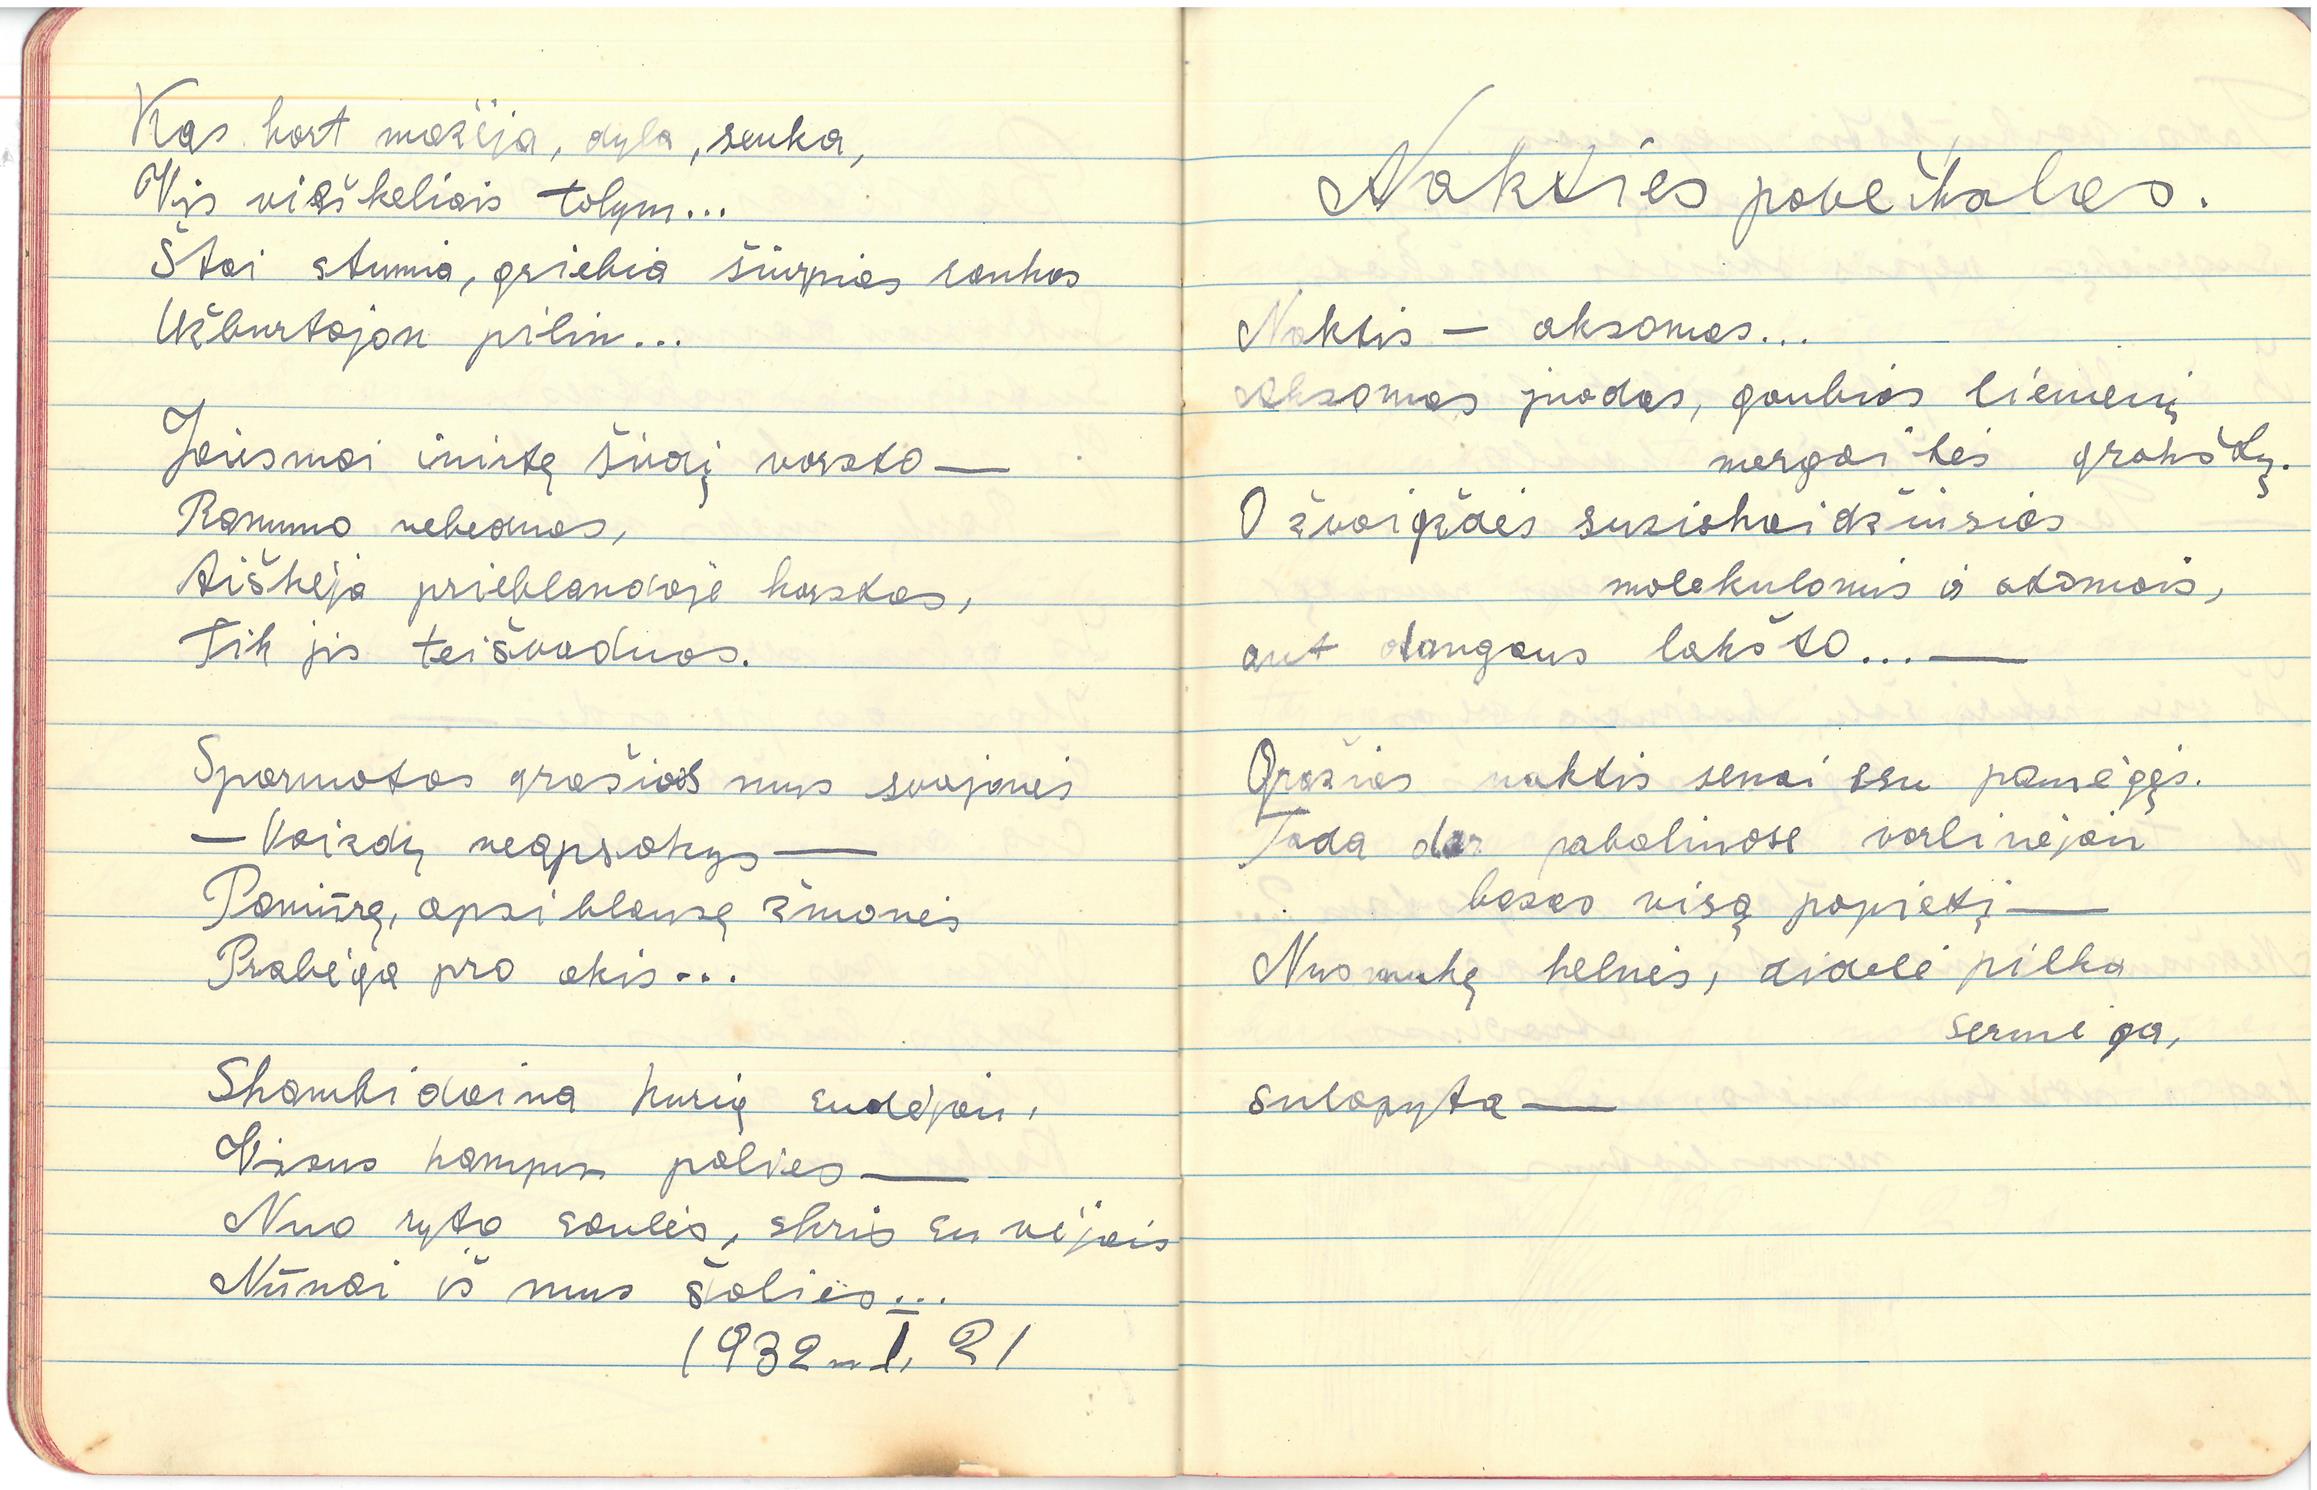 Kas kart mažėja, dyla, senka,
Vis vieškeliais tolyn...
Štai stumia, griebia šiurpios rankos
Užburtojon pilin...
Jausmai įnirtę širdį varsto —
Ramumo nebeduos,
Aiškėja prieblandoje karstas,
Tik jis teišvaduos.
Sparnuotos gražios mus svajonės
— Vaizdų neapsakys —
Paniūrę, apsiblausę žmonės
Prabėga pro akis...
Skambi daina kurią sudėjau,
Visus kampus palies —
Nuo ryto saulės, skris su vėjais
Niūnai iš mus šalies...
1932 m I, 21
Nakties paveikslas.
Naktis — aksomas...
Aksomas juodas, gaubiąs liemenį
mergaitės grakštų.
O žvaigždės susiskaidžiusios
molekulomis ir atomais,
ant dangaus lakšto... —
Gražias naktis senai esu pamėgęs.
Tada dar pabalinose varlinėjau
basas visą popietį —
Nusmukę kelnės, didelė pilka
sermėga,
sulopyta —